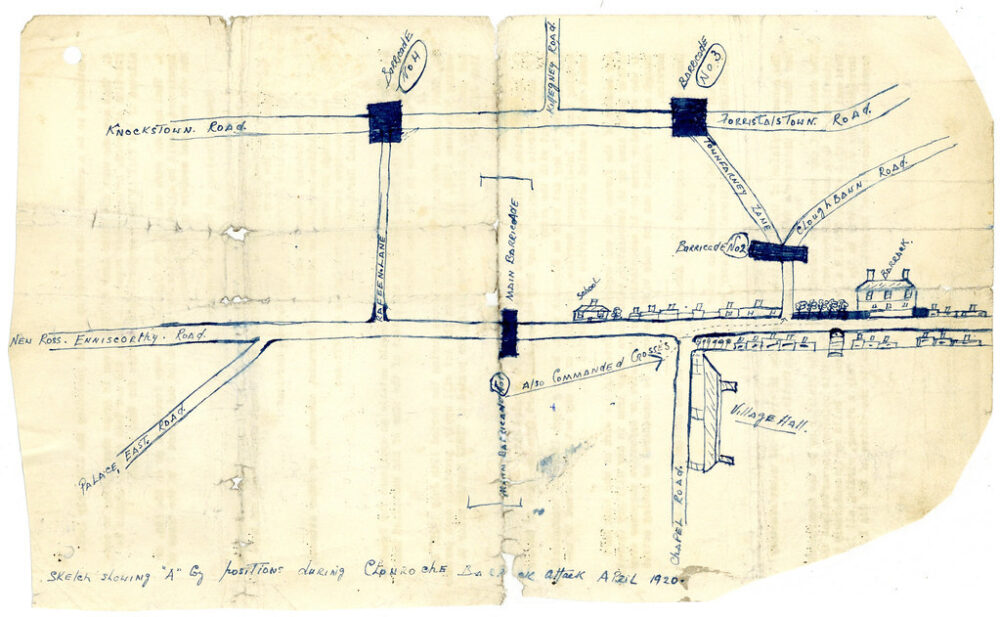 BARRICADE
No 4
KILEGNEY ROAD
BARRICADE
No 3
KNOCKSTOWN. ROAD.
FORRISTALSTOWN. ROAD.
TOWNFARNEY LANE
CLOUGHBAWN ROAD.
MAIN BARRICADE
BARRICADE No 2
BARRACK.
LANE
School
NEW ROSS. ENNISCORTHY. ROAD.
ALSO COMMANDED CROSSES
MAIN BARRICADE No 1
PALACE, EAST. ROAD.
Village Hall.
CHAPEL ROAD.
SKETCH SHOWING "A" Coy positions during CLONROCHE BARRACK attack APRIL 1920.